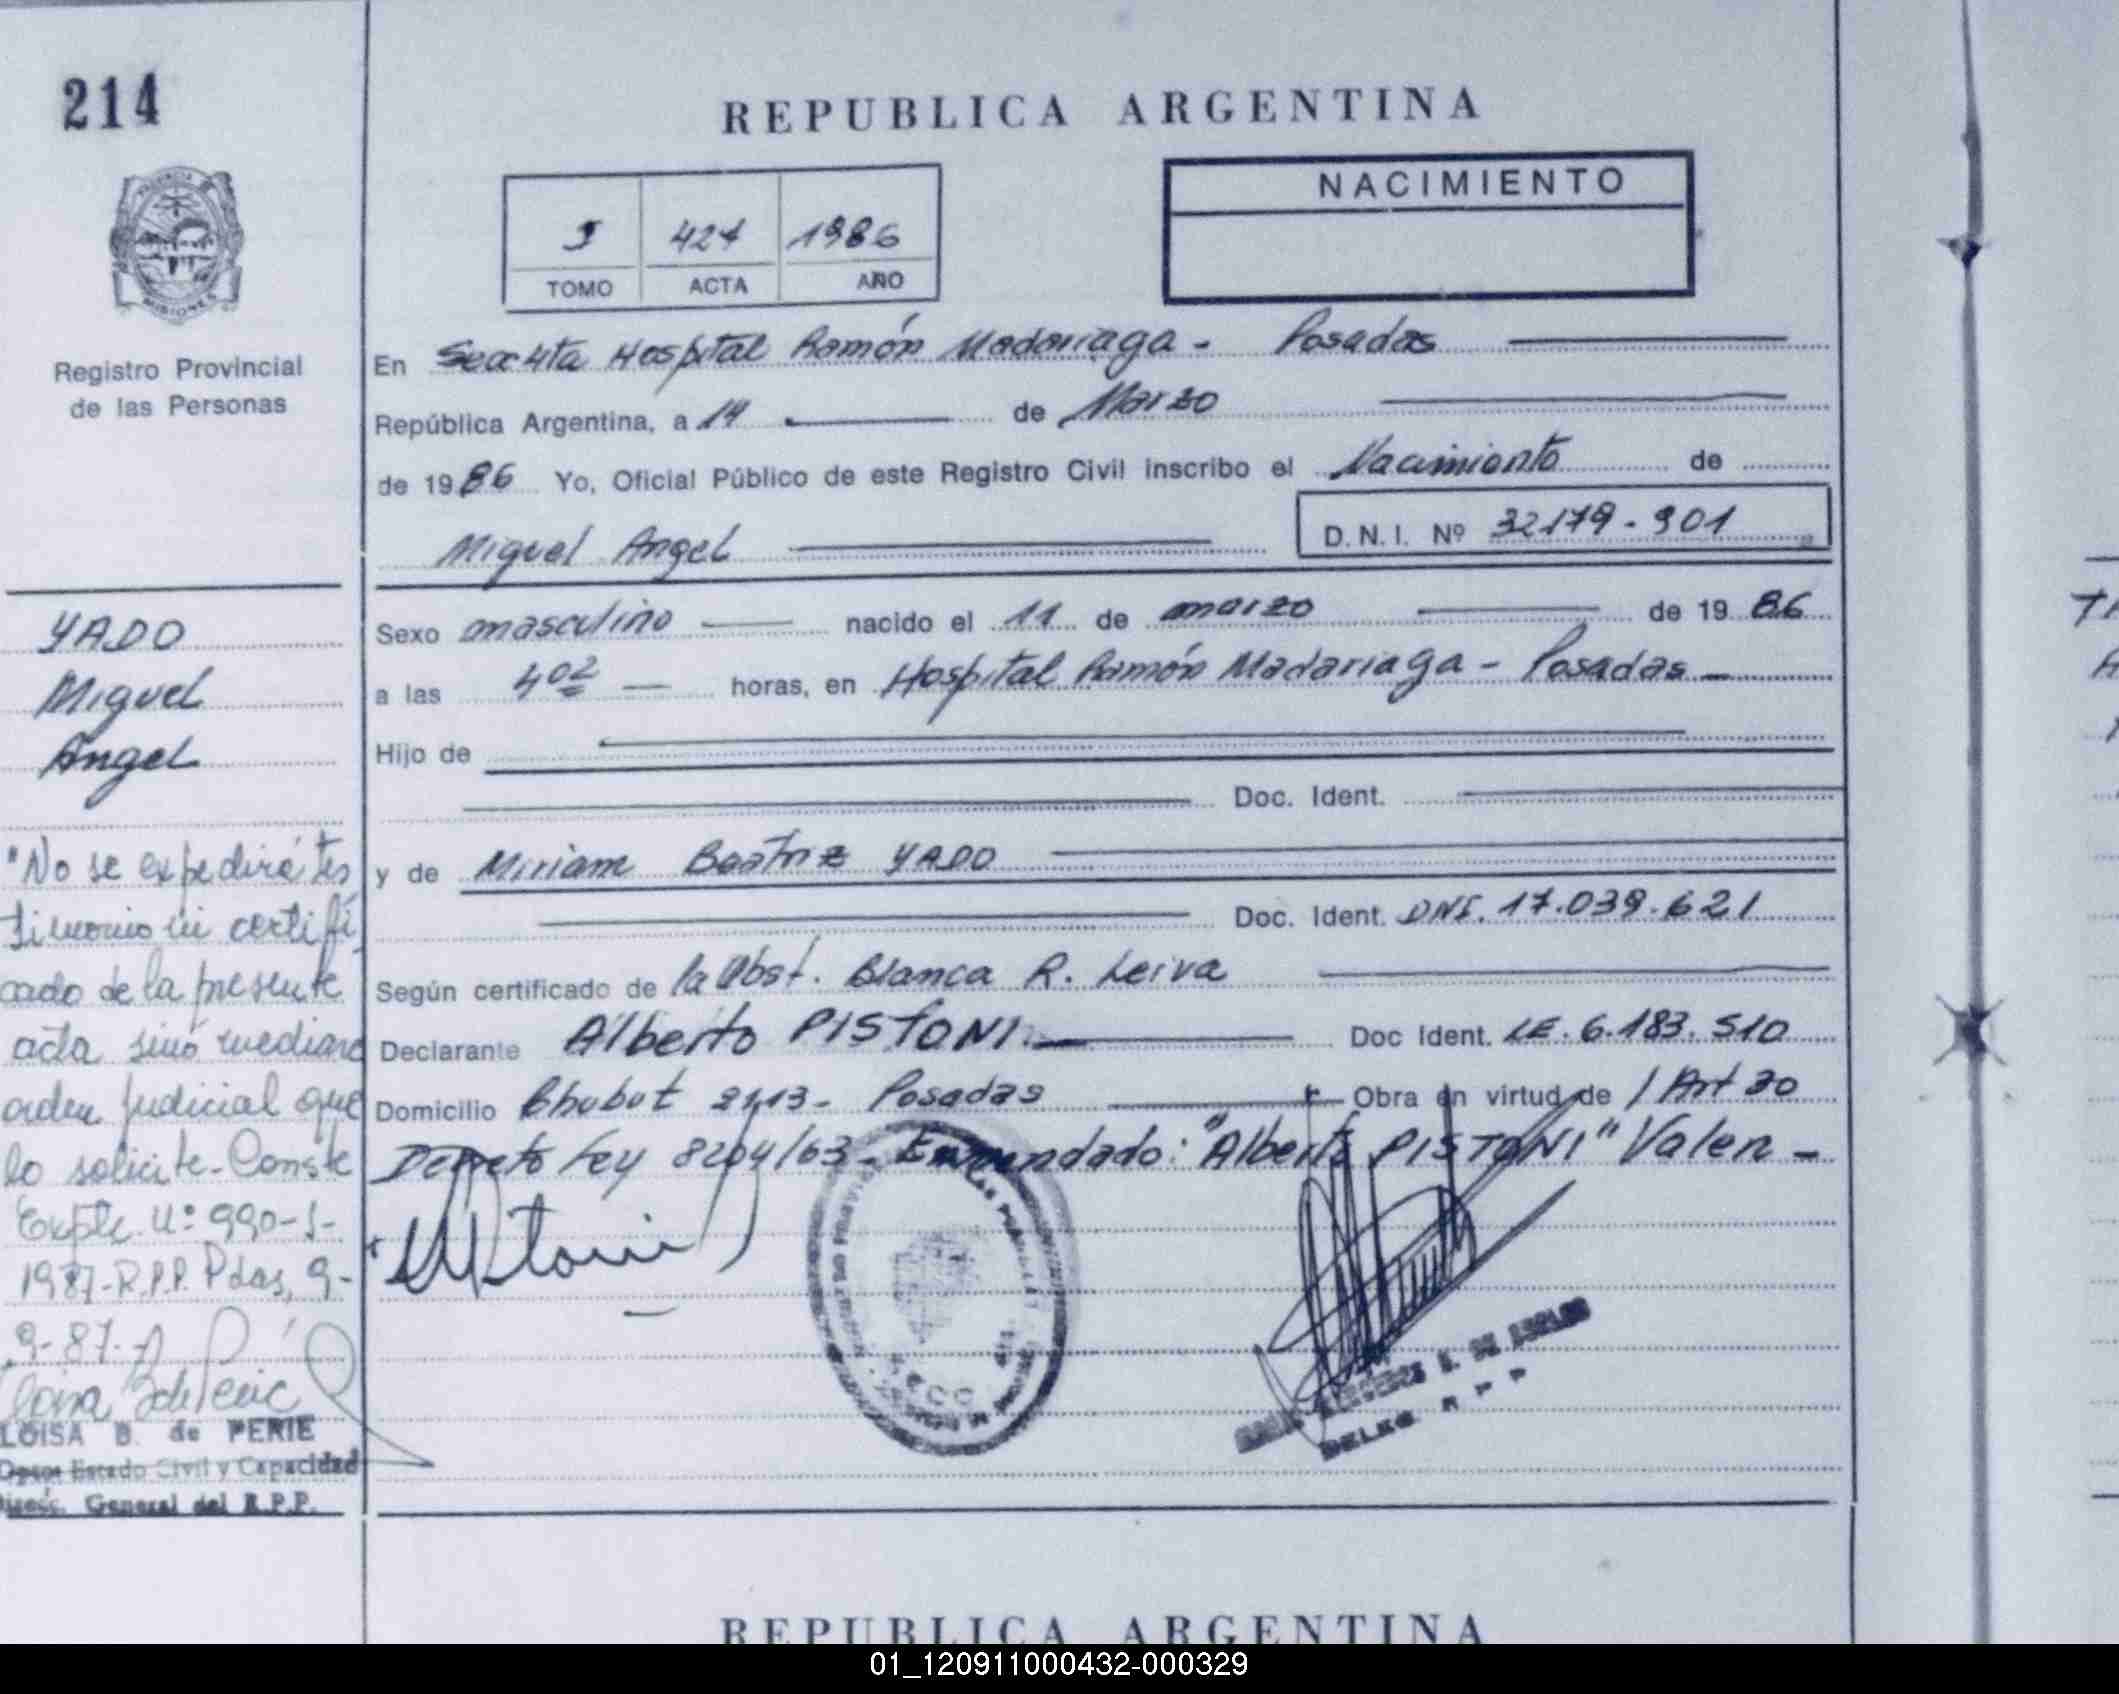 214
REPUBLICA ARGENTINA
NACIMIENTO
I 424 1986
TOMO ACTA AÑO
Registro Provincial
de las Personas
En Hospital Ramón Madariaga - Posadas
República Argentina, a 14 de Marzo
de 1986 Yo, Oficial Público de este Registro Civil inscribo el Nacimiento de
Miguel Angel
D.N.I. Nº 32179.901
YADO
Miguel
Angel
Sexo masculino nacido el 11 de marzo de 1986
a las 4 02 horas, en Hospital Ramón Madariaga - Posadas -
Hijo de
Doc. Ident.
y de Miriam Beatriz YADO
Doc. Ident. DNI. 17.039.621
Según certificado de la Obst. Blanca R. Leiva
Declarante Alberto PISTONI Doc Ident. LE. 6.183.510
Domicilio Chubut 2113 - Posadas Obra en virtud de / Art 30
Decreto Ley 8204/63 - Enmendado: "Alberto PISTONI" Valen -
"No se expedirá tes
timonio ni certifi
cado de la presente
acta sinó mediante
orden judicial que
lo solicite - Conste
Expte. Nº 990-J-
1987-R.P.P. Pdas, 9-
9-87-
LOISA B. de PERIE
Dpto. Estado Civil y Capacidad
Direcc. General del R.P.P.
REPUBLICA ARGENTINA
01_120911000432-000329